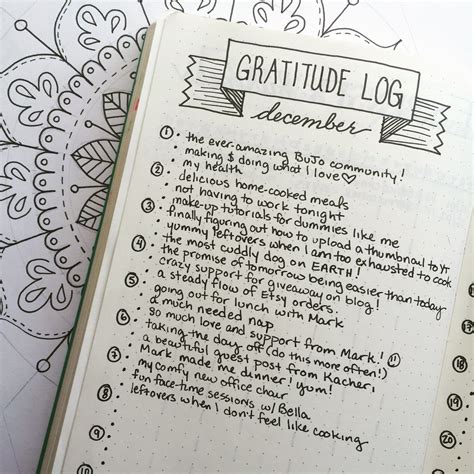 GRATITUDE LOG
december
1 • the ever-amazing BuJo community!
• making $ doing what I love♡
2 • my health
• delicious home-cooked meals
• not having to work tonight
3 • make-up tutorials for dummies like me
• finally figuring out how to upload a thumbnail to YT
• yummy leftovers when I am too exhausted to cook
4 • the most cuddly dog on EARTH!
• the promise of tomorrow being easier than today
• crazy support for giveaway on blog!
5 • a steady flow of Etsy orders.
• going out for lunch with Mark
• a much needed nap
6 • so much love and support from Mark!
• taking the day off (do this more often!)
• a beautiful guest post from Kacheri
7 • Mark made me dinner! yum!
• my comfy new office chair
• fun face-time sessions w/ Bella
8 • leftovers when I don't feel like cooking
9
10
11
19
20